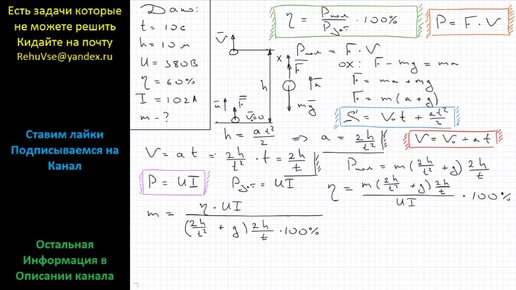 Есть задачи которые
не можете решить
Кидайте на почту
RehuVse@yandex.ru
Ставим лайки
Подписываемся на
Канал
Остальная
Информация в
Описании канала
Дано:
t = 10c
h = 10м
U = 380В
η = 60%
I = 102A
m - ?
V
F
a
V₀=0
h
x
F
a
mg
η = Pпол / Pзат · 100%
P = F · V
Pпол = F · V
ox: F - mg = ma
F = ma + mg
F = m(a + g)
S = V₀t + at²/2
h = at²/2 ⇒ a = 2h/t²
V = V₀ + at
V = at = 2h/t² · t = 2h/t
Pпол = m(2h/t² + g) 2h/t
P = UI
Pзат = UI
η = m(2h/t² + g) 2h/t / UI · 100%
m = η · UI / (2h/t² + g) 2h/t · 100%